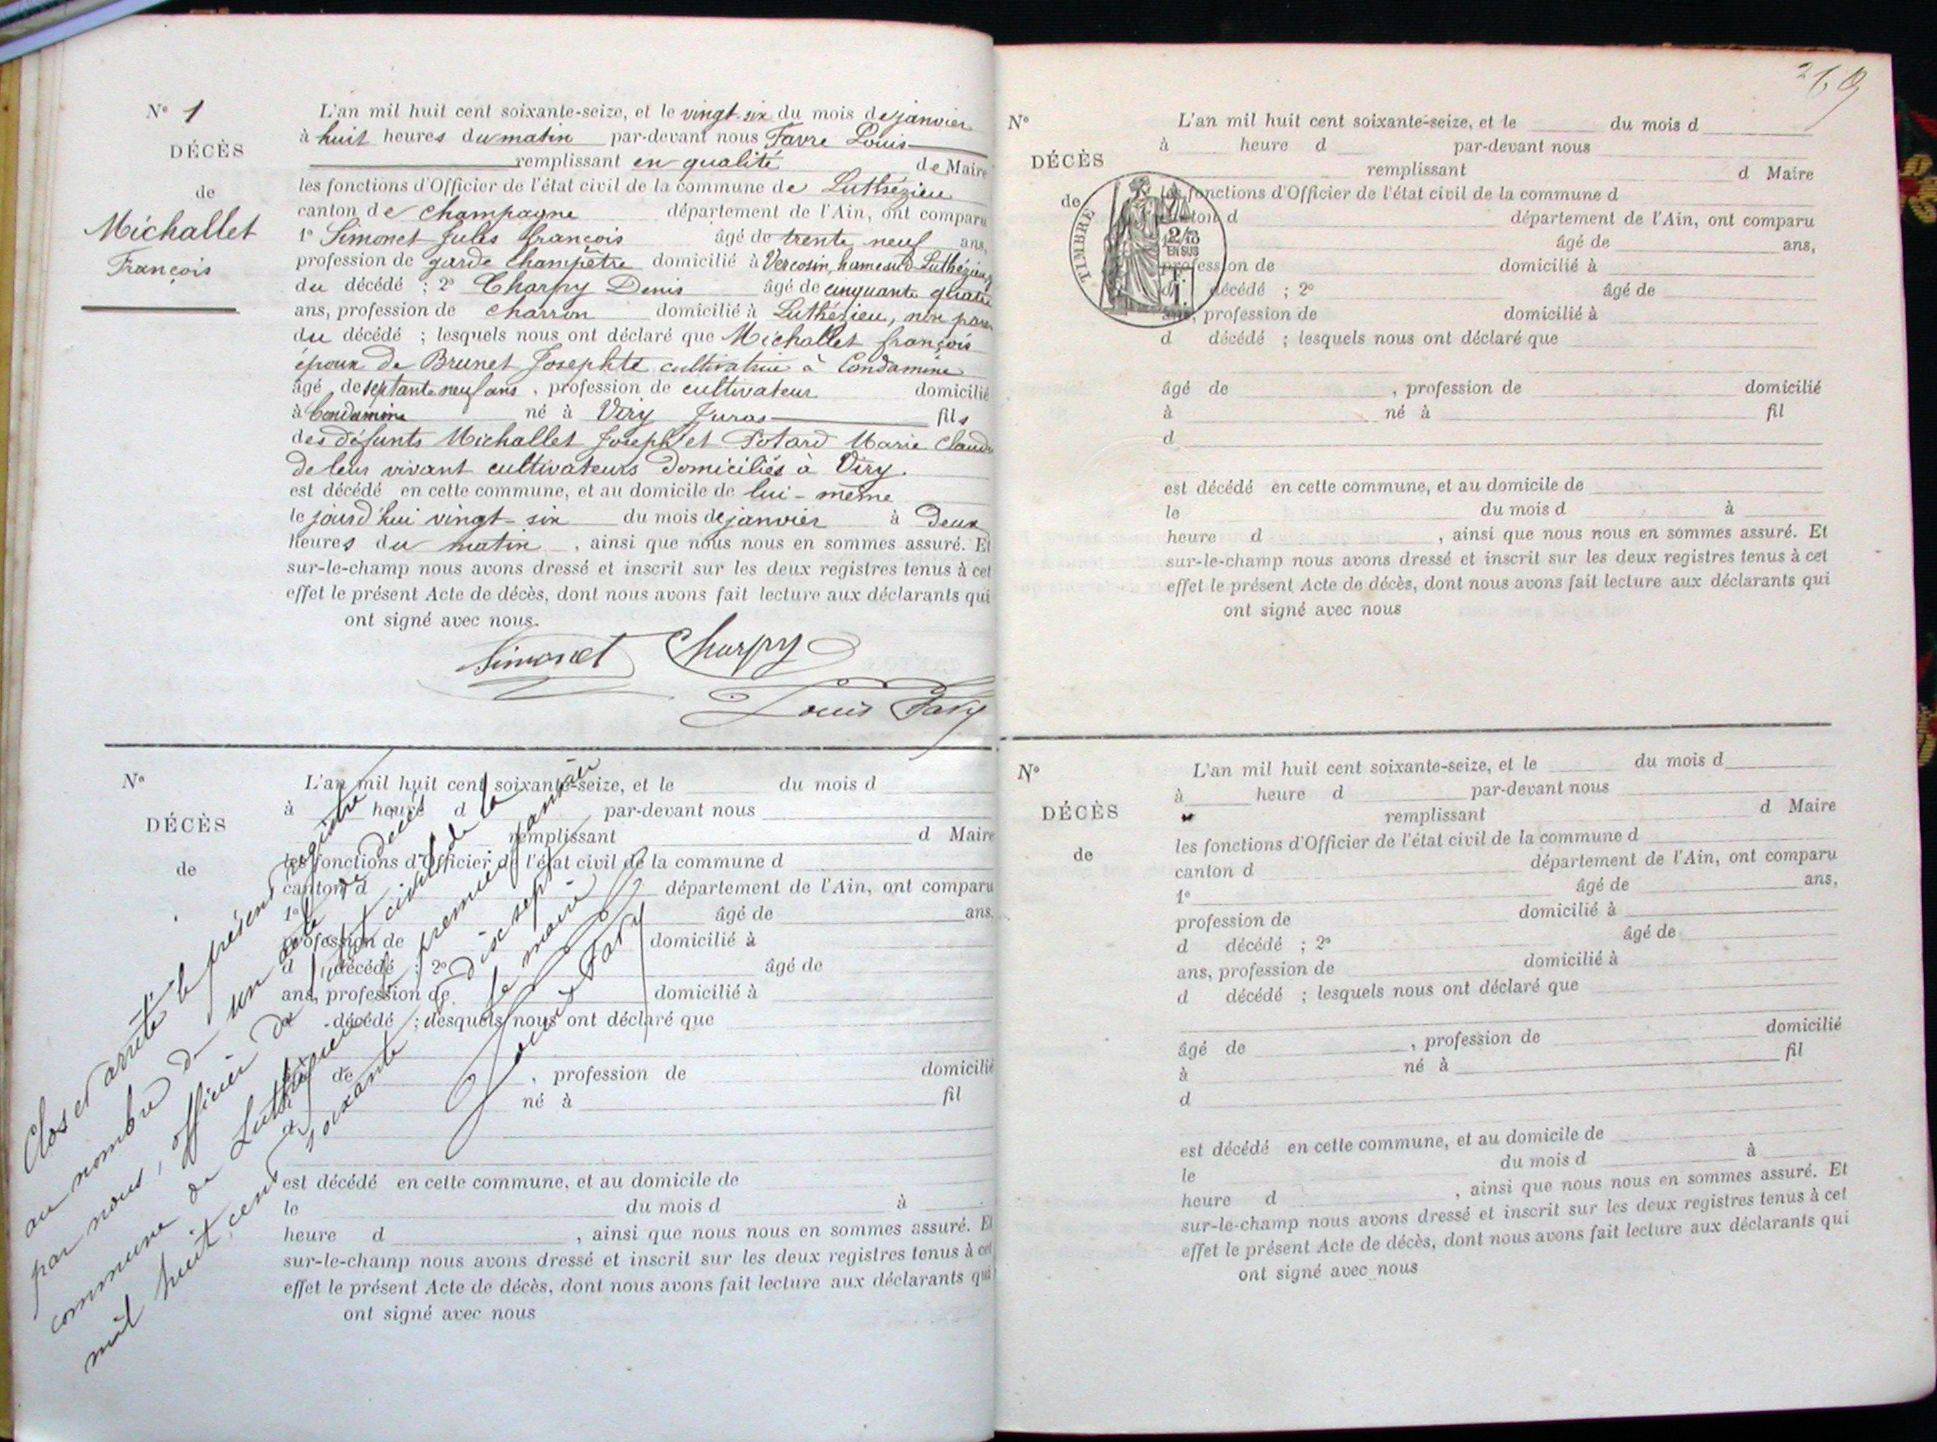 N° 1
DÉCÈS
de
Michallet
François
L'an mil huit cent soixante-seize, et le vingt-six du mois de janvier
à huit heures du matin par-devant nous Favre Louis
remplissant en qualité de Maire
les fonctions d'Officier de l'état civil de la commune de Luthézieu
canton de Champagne département de l'Ain, ont comparu
1° Simonet Jules françois âgé de trente neuf ans,
profession de garde Champêtre domicilié à Vercosin, hameau de Luthézieu
du décédé ; 2° Charpy Denis âgé de cinquante quatre
ans, profession de charron domicilié à Luthézieu, non paren
du décédé ; lesquels nous ont déclaré que Michallet françois
époux de Brunet Josephte cultivatrice à Condamine
âgé de septante neuf ans, profession de cultivateur domicilié
à Condamine né à Viry Juras fils
des défunts Michallet Joseph et Potard Marie Claudi
de leur vivant cultivateurs domiciliés à Viry.
est décédé en cette commune, et au domicile de lui-même
le jourd'hui vingt-six du mois de janvier à Deux
heures du matin, ainsi que nous nous en sommes assuré. Et
sur-le-champ nous avons dressé et inscrit sur les deux registres tenus à cet
effet le présent Acte de décès, dont nous avons fait lecture aux déclarants qui
ont signé avec nous.
Simonet Charpy
Louis Favre
N°
DÉCÈS
de
L'an mil huit cent soixante-seize, et le du mois d
à heure d par-devant nous
remplissant d Maire
les fonctions d'Officier de l'état civil de la commune d
canton d département de l'Ain, ont comparu
1° âgé de ans,
profession de domicilié à
d décédé ; 2° âgé de
ans, profession de domicilié à
d décédé ; lesquels nous ont déclaré que
âgé de , profession de domicilié
né à fil
est décédé en cette commune, et au domicile de
le du mois d à
heure d , ainsi que nous nous en sommes assuré. Et
sur-le-champ nous avons dressé et inscrit sur les deux registres tenus à cet
effet le présent Acte de décès, dont nous avons fait lecture aux déclarants qui
ont signé avec nous
Clos et arrêté le présent registre
au nombre de un acte de décès
par nous, officier de l'état civil de la
commune de Luthézieu le premier janvier
mil huit cent soixante dix sept
le maire
Louis Favre
269
N°
DÉCÈS
de
TIMBRE
2/10
EN SUS
L'an mil huit cent soixante-seize, et le du mois d
à heure d par-devant nous
remplissant d Maire
les fonctions d'Officier de l'état civil de la commune d
canton d département de l'Ain, ont comparu
âgé de ans,
profession de domicilié à
d décédé ; 2° âgé de
ans, profession de domicilié à
d décédé ; lesquels nous ont déclaré que
âgé de , profession de domicilié
à né à fil
d
est décédé en cette commune, et au domicile de
le du mois d à
heure d , ainsi que nous nous en sommes assuré. Et
sur-le-champ nous avons dressé et inscrit sur les deux registres tenus à cet
effet le présent Acte de décès, dont nous avons fait lecture aux déclarants qui
ont signé avec nous
N°
DÉCÈS
de
L'an mil huit cent soixante-seize, et le du mois d
à heure d par-devant nous
remplissant d Maire
les fonctions d'Officier de l'état civil de la commune d
canton d département de l'Ain, ont comparu
1° âgé de ans,
profession de domicilié à
d décédé ; 2° âgé de
ans, profession de domicilié à
d décédé ; lesquels nous ont déclaré que
âgé de , profession de domicilié
à né à fil
d
est décédé en cette commune, et au domicile de
le du mois d à
heure d , ainsi que nous nous en sommes assuré. Et
sur-le-champ nous avons dressé et inscrit sur les deux registres tenus à cet
effet le présent Acte de décès, dont nous avons fait lecture aux déclarants qui
ont signé avec nous